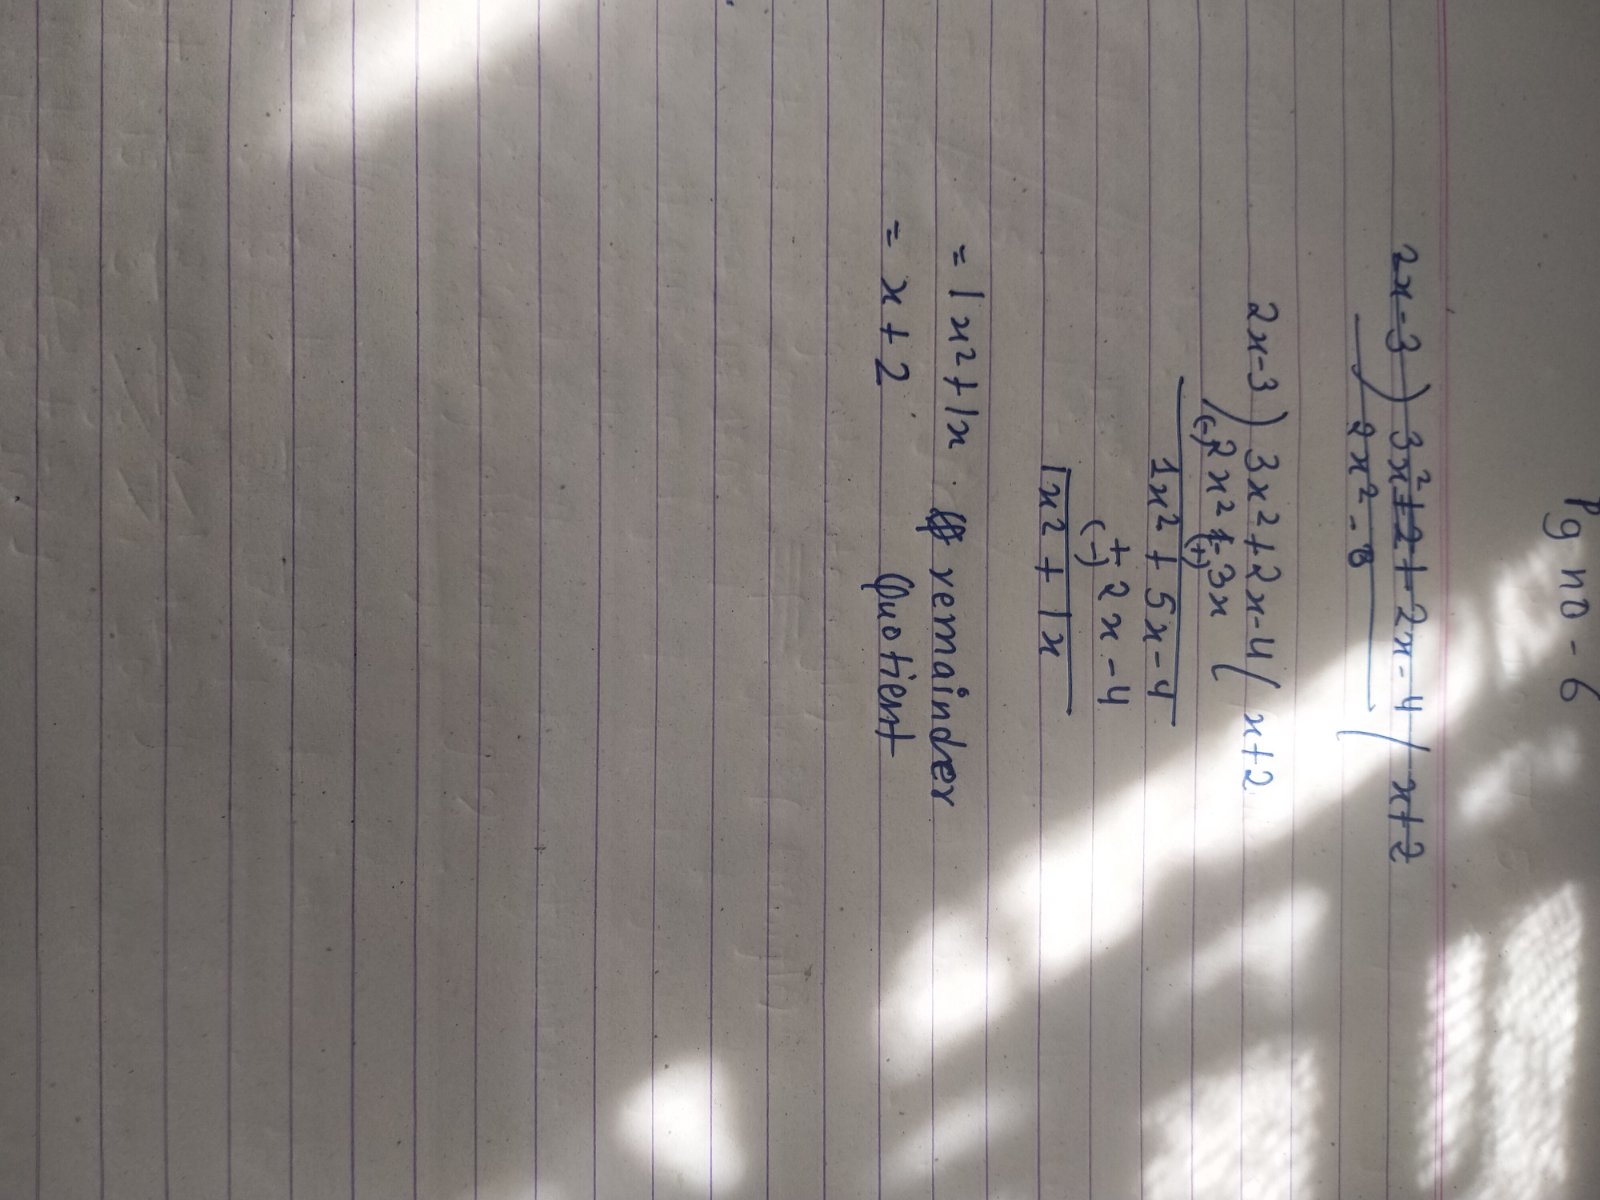 Pg no - 6
2x-3 ) 3x²+2+ 2x-4 ( x+2
2x² - 3
2x-3 ) 3x²+2x-4 ( x+2
(-)2x² -(+)3x
1x² + 5x-4
+ 2x-4
(-)
1x² + 1x
= 1x²+1x remainder
= x+2 Quotient